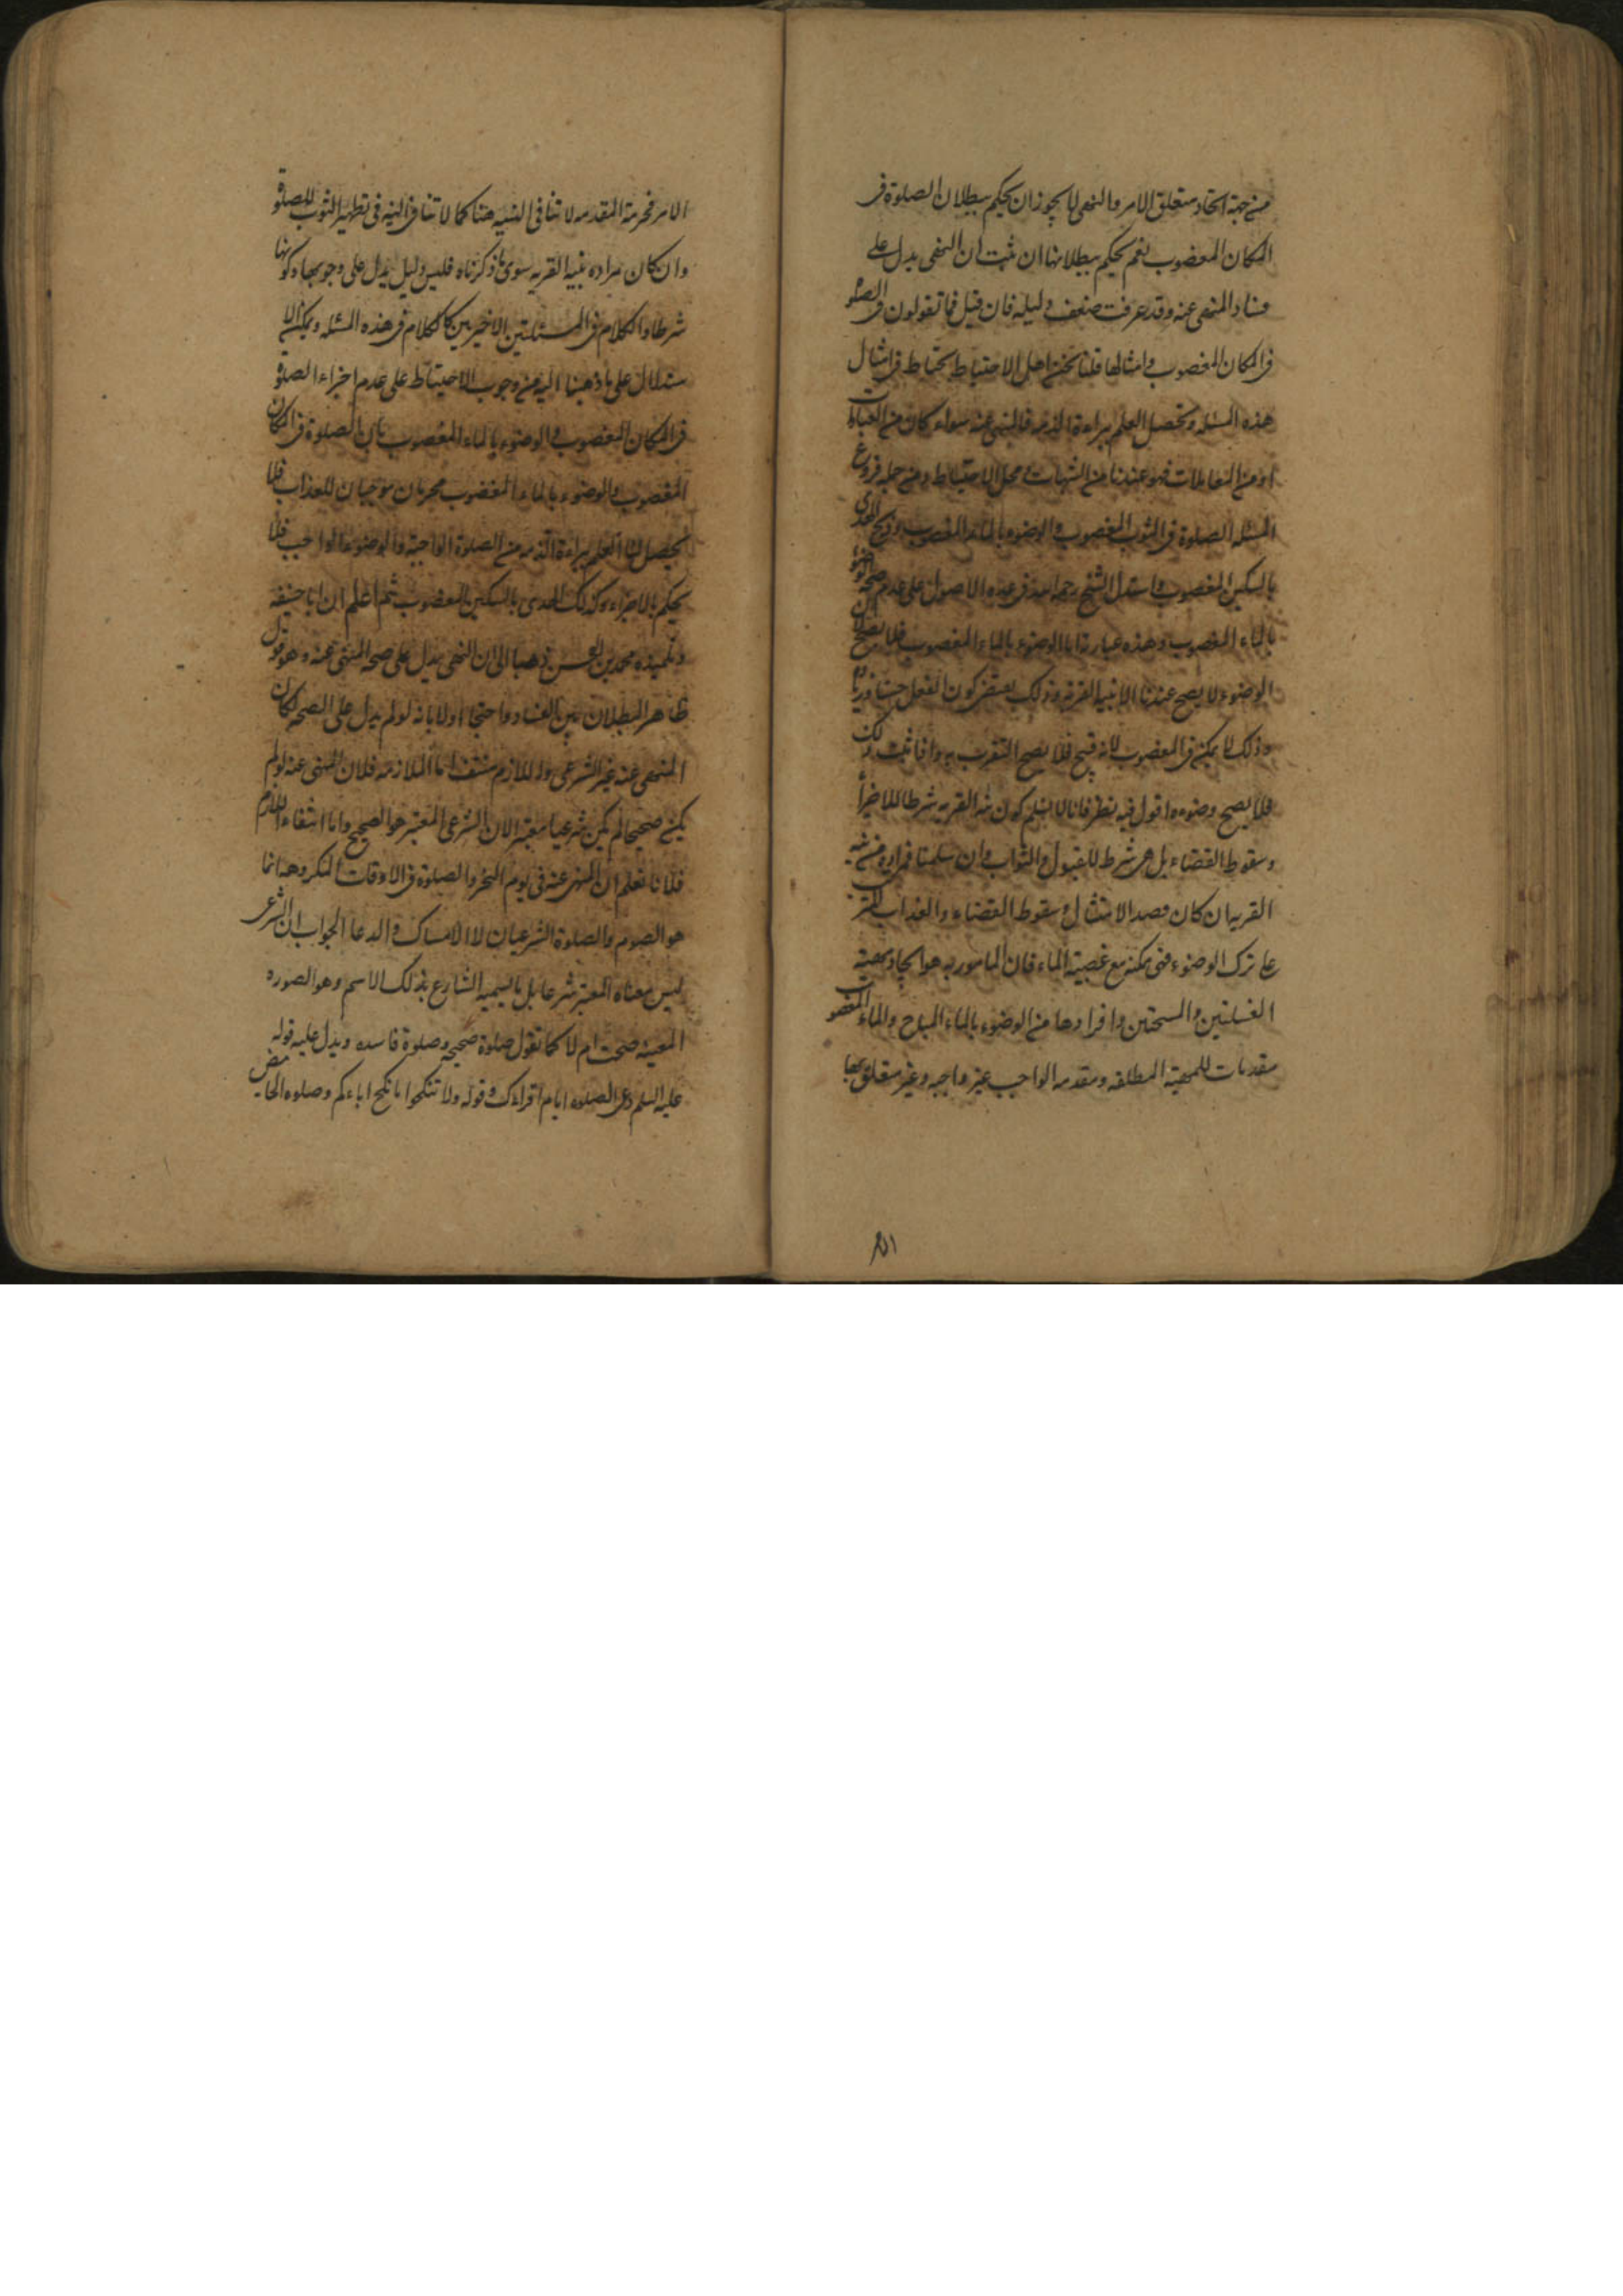 من جهة اتحاد متعلق الامر والنهى لا يجوز ان يحكم ببطلان الصلوة فى
المكان المغصوب نعم يحكم ببطلانها ان ثبت ان النهى يدل على
فساد المنهى عنه وقد عرفت ضعف دليله فان قيل فما تقولون فى الصلوة
فى المكان المغصوب وامثالها قلنا نحن اهل الاحتياط نحتاط فى امثال
هذه المسئله وتحصل العلم ببراءة الذمه فالمنهى عنه سواء كان من العبادات
او من المعاملات فهو عندنا من الشبهات ومحل الاحتياط ومن جمله فروع
المسئله الصلوة فى الثوب المغصوب والوضوء بالماء المغصوب وذبح الهدى
بالسكين المغصوب واستدل الشيخ رحمه الله فى عده الاصول على عدم صحة الوضوء
بالماء المغصوب وهذه عبارته اما الوضوء بالماء المغصوب فلا يصح لان
الوضوء لا يصح عندنا الا بنية القربه وذلك يقتضى كون الفعل حسنا وزياده
وذلك لا يمكن فى المغصوب لانه قبيح فلا يصح التقرب به واذا ثبت ذلك
فلا يصح وضوءه واقول فيه نظر فانا لا نسلم كون نية القربه شرطا للاجزاء
وسقوط القضاء بل هى شرط للقبول والثواب وان سلمنا فمراده من نيه
القربه ان كان قصد الامتثال وسقوط القضاء والعذاب المترتب
على ترك الوضوء فهى ممكنه مع غصبية الماء فان المامور به هو ايجاد مهية
الغسلتين والمسحتين وافرادها من الوضوء بالماء المباح والماء المغصوب
مقدمات للمهية المطلقه ومقدمه الواجب غير واجبه وغير متعلق بها
۸۱
الامر فحرمة المقدمه لا تنافى النيه هنا كما لا تنافى النيه فى تطهير الثوب للصلوة
وان كان مراده بنيه القربه سوى ما ذكرناه فليس دليل يدل على وجوبها وكونها
شرطا والكلام فى المسئلتين الاخيرتين كالكلام فى هذه المسئله ويمكن الا
ستدلال على ما ذهبنا اليه من وجوب الاحتياط على عدم اجزاء الصلوة
فى المكان المغصوب والوضوء بالماء المغصوب بان الصلوة فى المكان
المغصوب والوضوء بالماء المغصوب محرمان موجبان للعذاب فلا
يحصل لنا العلم ببراءة الذمه من الصلوة الواجبة والوضوء الواجب فلا
يحكم بالاجزاء وكذلك الهدى بالسكين المغصوب ثم اعلم ان ابا حنيفه
وتلميذه محمد بن الحسن ذهبا الى ان النهى يدل على صحه المنهى عنه وهو قول
ظاهر البطلان بين الفساد واحتجا اولا بانه لو لم يدل على الصحه لكان
المنهى عنه غير الشرعى واللازم منتف اما الملازمه فلان المنهى عنه لو لم
يكن صحيحا لم يكن شرعيا معتبرا لان الشرعى المعتبر هو الصحيح واما انتفاء اللازم
فلانا نعلم ان المنهى عنه فى يوم النحر والصلوة فى الاوقات المكروهه انما
هو الصوم والصلوة الشرعيان لا الامساك والدعا الجواب ان الشرعى
ليس معناه المعتبر شرعا بل ما يسميه الشارع بذلك الاسم وهو الصوره
المعينه صحت ام لا كما تقول صلوة صحيحه وصلوة فاسده ويدل عليه قوله
عليه السلم دعى الصلوه ايام اقراءك وقوله ولا تنكحوا ما نكح اباءكم وصلوه الحايض